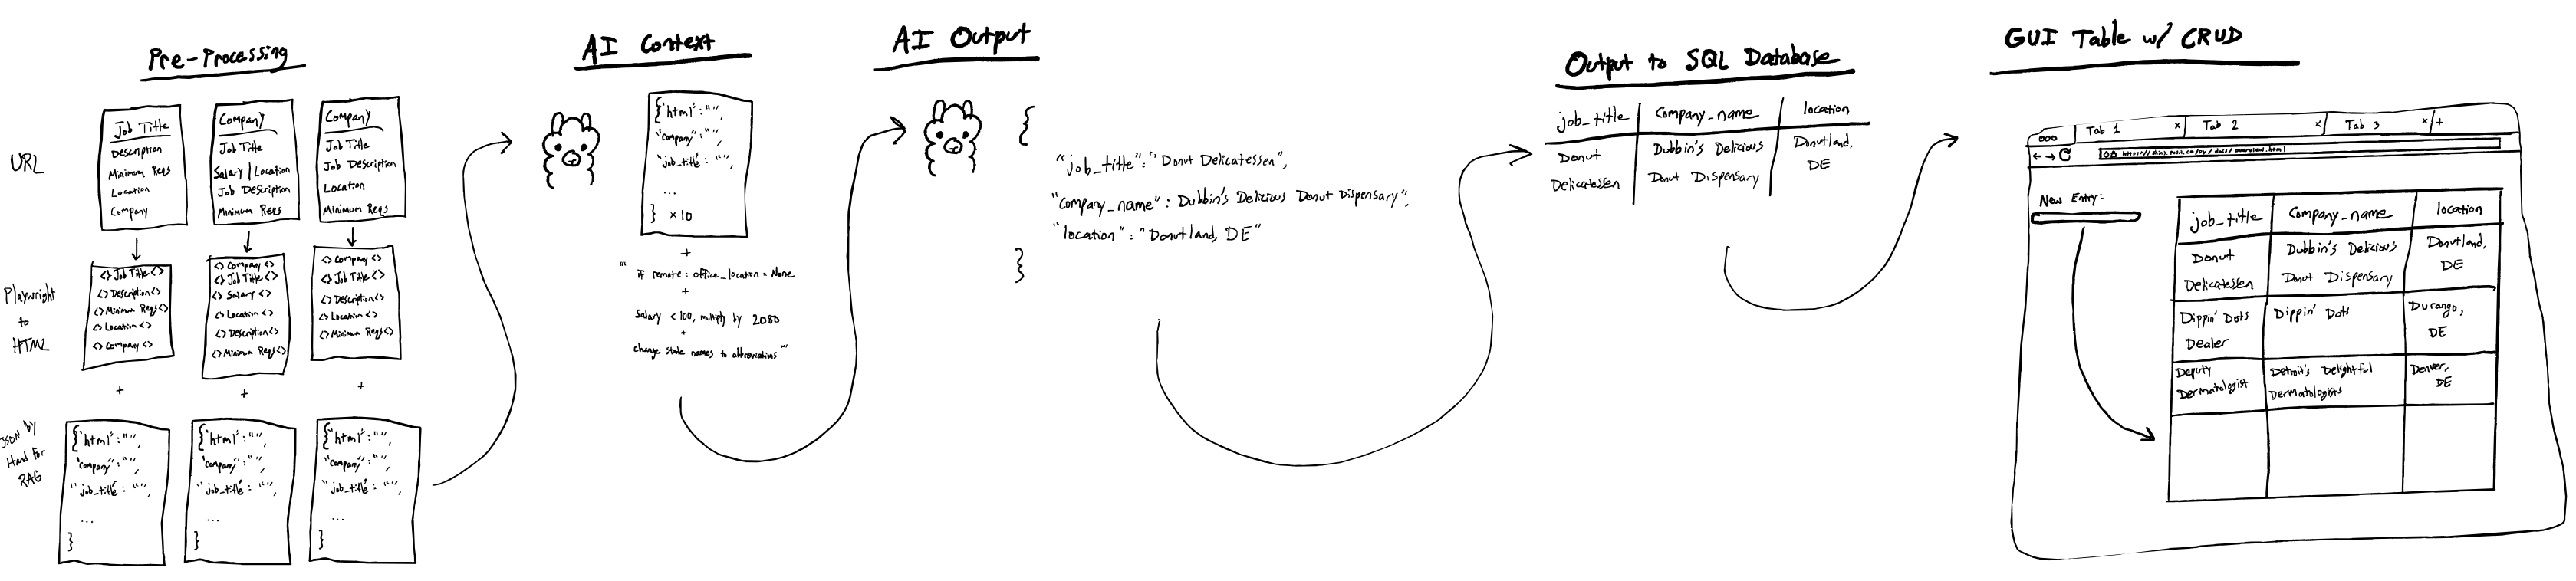 Pre-Processing
URL
Job Title
Description
Minimum Reqs
Location
Company
Company
Job Title
Salary | Location
Job Description
Minimum Reqs
Company
Job Title
Job Description
Location
Minimum Reqs
Playwright
to
HTML
<> Job Title <>
<> Description <>
<> Minimum Reqs <>
<> Location <>
<> Company <>
<> Company <>
<> Job Title <>
<> Salary <>
<> Location <>
<> Description <>
<> Minimum Reqs <>
<> Company <>
<> Job Title <>
<> Description <>
<> Location <>
<> Minimum Reqs <>
+
+
+
JSON by
Hand for
RAG
{"html":"",
"company":"",
"job_title": "",
...
}
{"html":"",
"company":"",
"job_title": "",
...
}
{"html":"",
"company":"",
"job_title": "",
...
}
AI Context
{"html":"",
"company":"",
"job_title": "",
...
} x10
+
"" if remote: office_location = None
+
Salary < 100, multiply by 2080
+
change state names to abbreviations ""
AI Output
{
"job_title": "Donut Delicatessen",
"company_name": Dubbin's Delicious Donut Dispensary",
"location": "Donutland, DE"
}
Output to SQL Database
job_title | Company_name | location
Donut
Delicatessen
Dubbin's Delicious
Donut Dispensary
Donutland,
DE
GUI Table w/ CRUD
Tab 1 x Tab 2 x Tab 3 x +
New Entry:
job_title
Company_name
location
Donut
Delicatessen
Dubbin's Delicious
Donut Dispensary
Donutland,
DE
Dippin' Dots
Dealer
Dippin' Dots
Durango,
DE
Deputy
Dermatologist
Detroit's Delightful
Dermatologists
Denver,
DE